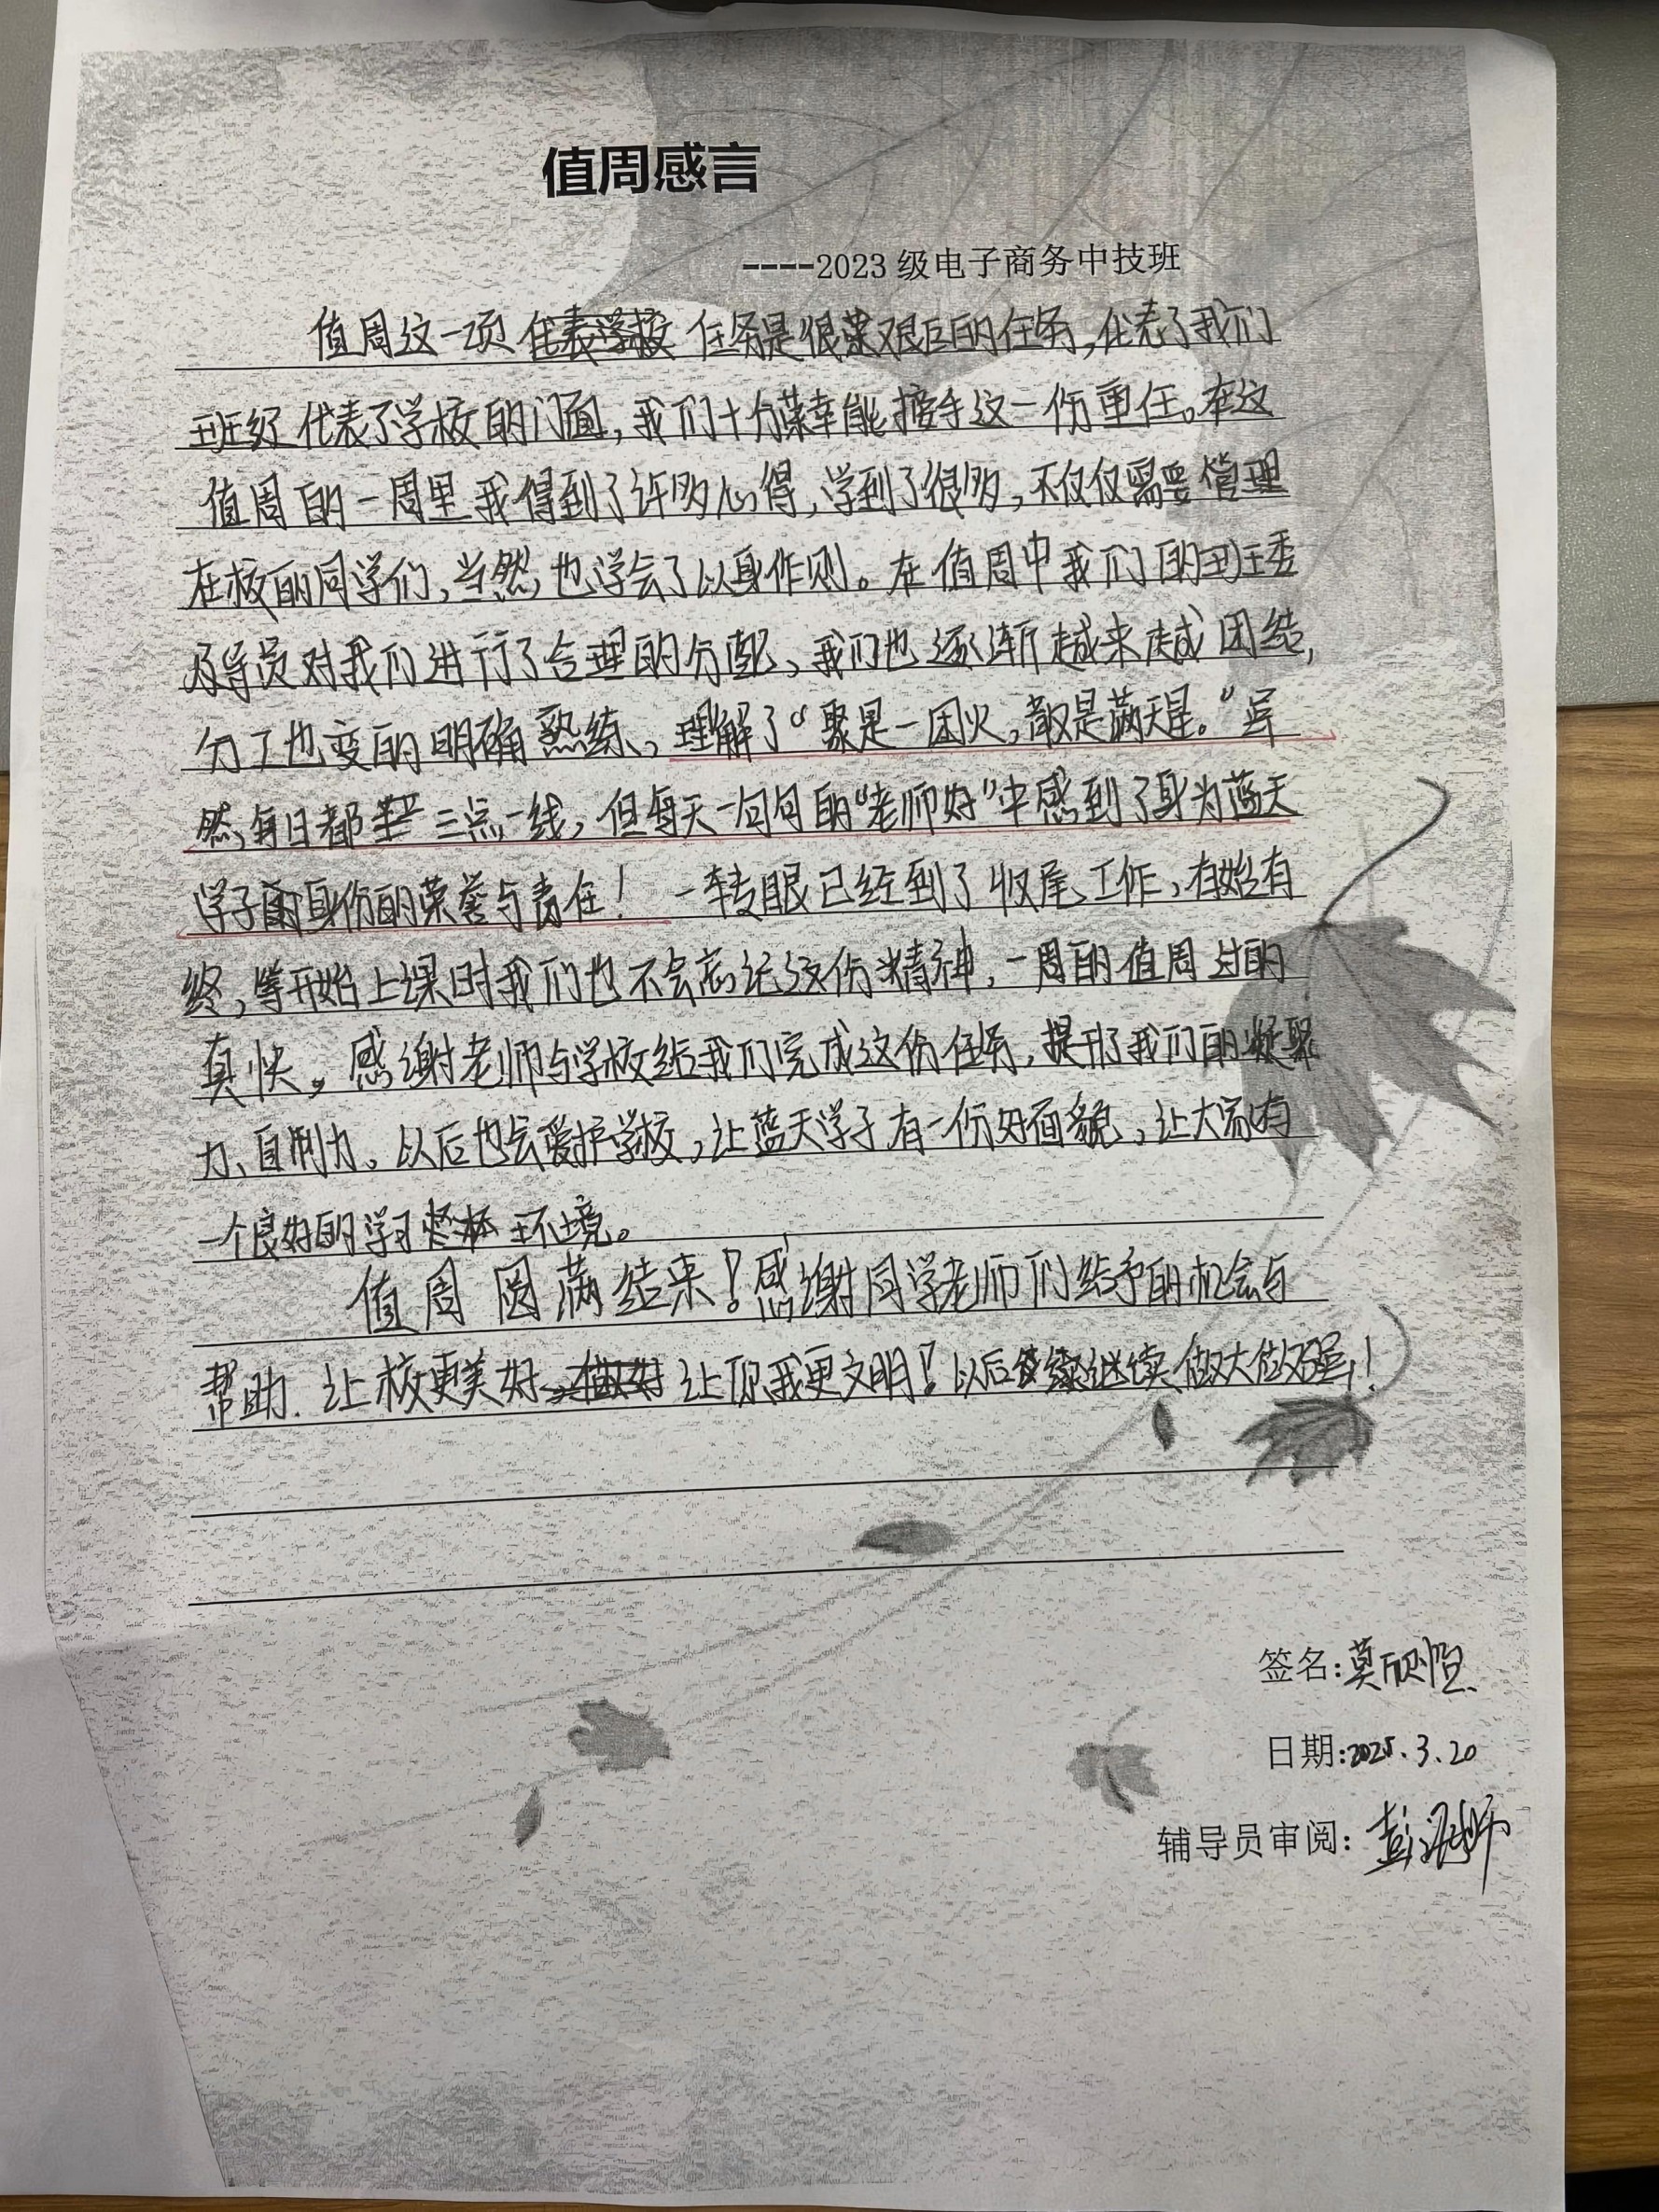 值周感言
----2023级电子商务中技班
值周这一项任务是很艰巨的任务,代表了我们
班级代表了学校的门面,我们十分荣幸能接手这一份重任。在这
值周的一周里我得到了许多心得,学到了很多,不仅仅需要管理
在校的同学们,当然,也学会了以身作则。在值周中我们的班委
及导员对我们进行了合理的分配,我们也逐渐越来越团结,
分工也变的明确熟练,理解了“聚是一团火,散是满天星。”虽
然,每日都三点一线,但每天一句句的“老师好”中感到了身为蓝天
学子身份的荣誉与责任!一转眼已经到了收尾工作,有始有
终,等开始上课时我们也不会忘记这份精神,一周的值周过的
真快。感谢老师与学校给我们完成这份任务,提升了我们的凝聚
力、自制力。以后也会爱护学校,让蓝天学子有一份好面貌,让大家有
一个良好的学习环境。
值周圆满结束!感谢同学老师们给予的机会与
帮助.让校更美好让你我更文明!以后继续做大做强!
签名:莫欣
日期:2025.3.20
辅导员审阅:彭